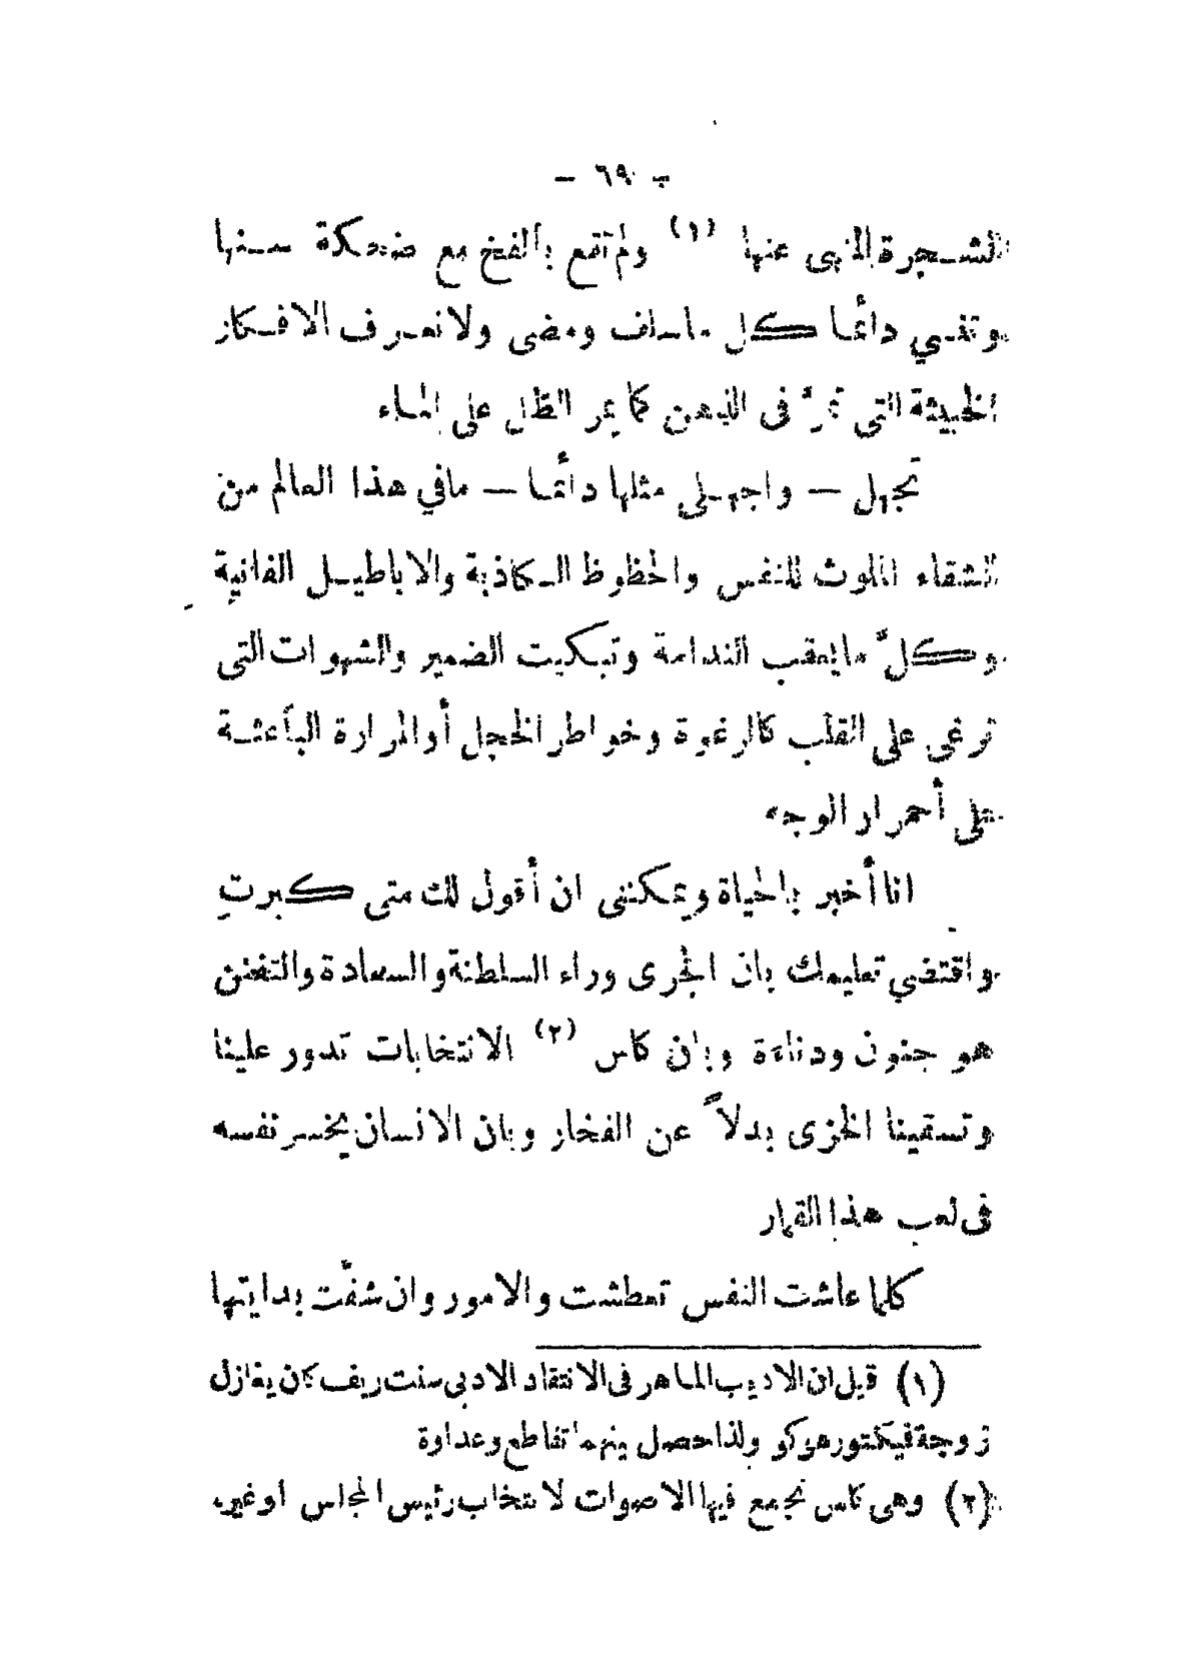 – ٦٩ –
الشجرة المنهى عنها (١) ولم تقع بالفخ مع ضحكة سنها
وتنسي دائمًا كل ما سلف ومضى ولا تعرف الافكار
الخبيثة التي تمرّ فى الذهن كما يمر الظل على الماء
تجهل – واجهلى مثلها دائمًا – مافي هذا العالم من
الشقاء الملوث للنفس والحظوظ الكاذبة والاباطيل الفانية
وكلّ ما يعقب الندامة وتبكيت الضمير والشهوات التى
ترغى على القلب كالرغوة وخواطر الخجل أو المرارة الباعثة
على أحمرار الوجه
انا أخبر بالحياة ويمكننى ان أقول لك متى كبرتِ
واقتضي تعليمك بان الجرى وراء السلطنة والسعادة والتفنن
هو جنون ودناءة وبان كاس (٢) الانتخابات تدور علينا
وتسقينا الخزى بدلاً عن الفخار وبان الانسان يخسر نفسه
فى لعب هذا القمار
كلما عاشت النفس تعطشت والامور وان شفّت بدايتها
(١) قيل ان الاديب الماهر فى الانتقاد الادبى سنت ريف كان يغازل
زوجة فيكتور هوكو ولذا حصل بينهما تقاطع وعداوة
(٢) وهى كاس تجمع فيها الاصوات لانتخاب رئيس المجلس أو غيره